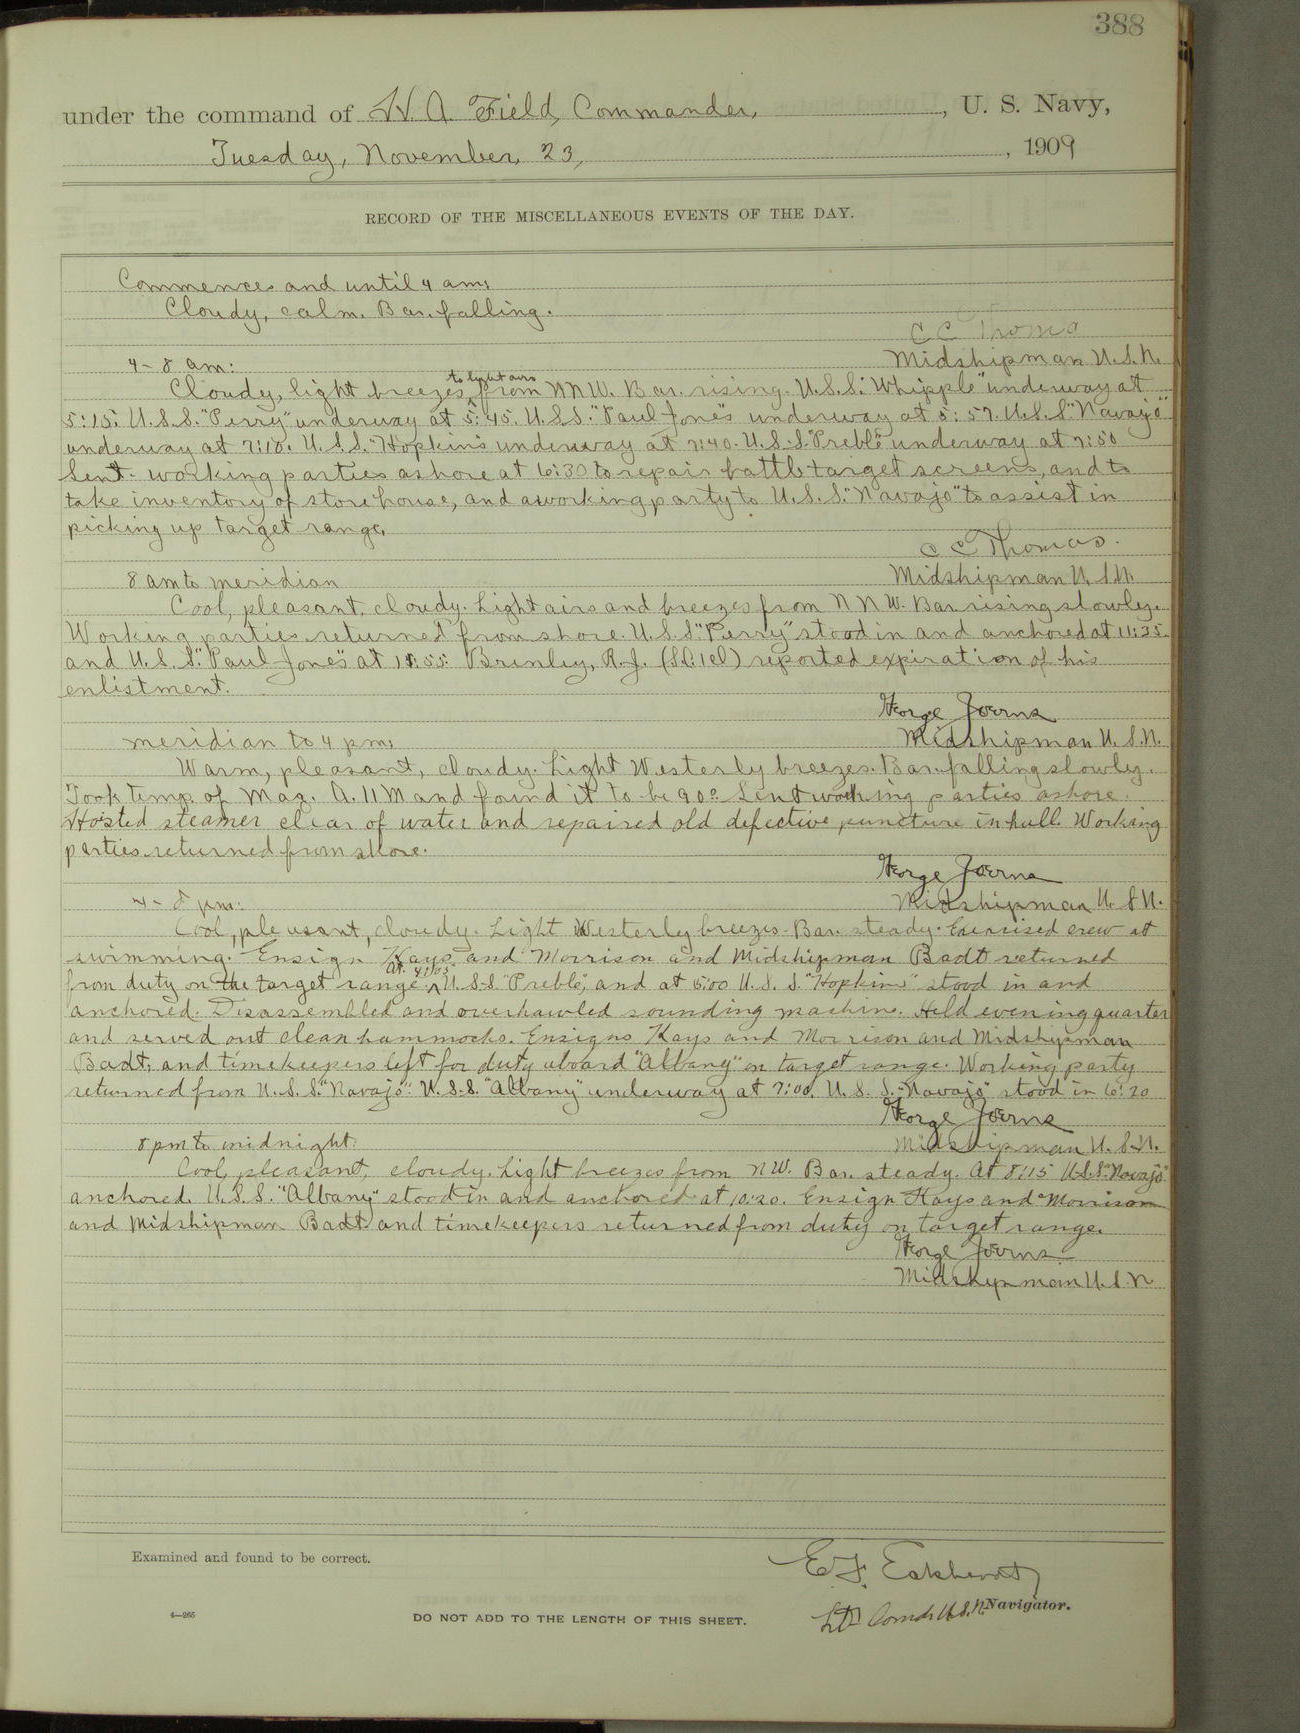 388
under the command of W. A. Field, Commander, , U. S. Navy,
Tuesday, November, 23, , 1909
RECORD OF THE MISCELLANEOUS EVENTS OF THE DAY.
Commences and until 4 am:
Cloudy, calm. Bar. falling.
C C Thomas
Midshipman U.S.N.
4- 8 am:
Cloudy, light breezes to light airs from NNW. Bar. rising. U.S.S. "Whipple" underway at
5:15. U.S.S. "Perry" underway at 5:45. U.S.S. "Paul Jones" underway at 5:57. U.S.S. "Navajo"
underway at 7:10. U.S.S. "Hopkins" underway at 7:40. U.S.S. "Preble" underway at 7:50
Sent working parties ashore at 6:30 to repair battle target screens, and to
take inventory of store house, and a working party to U.S.S. "Navajo" to assist in
picking up target range.
C C Thomas.
Midshipman U.S.N.
8 am to meridian
Cool, pleasant, cloudy. Light airs and breezes from NNW. Bar. rising slowly.
Working parties returned from shore. U.S.S. "Perry" stood in and anchored at 11:35
and U.S.S. "Paul Jones" at 11:55. Brinley, R.J. (S.C. 1cl) reported expiration of his
enlistment.
George Joerns
Midshipman U.S.N.
meridian to 4 pm:
Warm, pleasant, cloudy. Light Westerly breezes. Bar. falling slowly.
Took temp. of Mag. A. 11 M and found it to be 90°. Sent working parties ashore.
Hoisted steamer clear of water and repaired old defective puncture in hull. Working
parties returned from shore.
George Joerns
Midshipman U.S.N.
4- 8 pm:
Cool, pleasant, cloudy. Light Westerly breezes. Bar. steady. Exercised crew at
swimming. Ensign Kays and Morrison and Midshipman Badt returned
from duty on the target range. At 4:05 U.S.S. "Preble", and at 5:00 U.S.S. "Hopkins" stood in and
anchored. Disassembled and overhauled sounding machine. Held evening quarters
and served out clean hammocks. Ensigns Kays and Morrison and Midshipman
Badt, and timekeepers left for duty aboard "Albany" on target range. Working party
returned from U.S.S. "Navajo". U.S.S. "Albany" underway at 7:00. U.S.S. "Navajo" stood in 6:20
George Joerns
Midshipman U.S.N.
8 pm to midnight:
Cool, pleasant, cloudy. Light breezes from NW. Bar. steady. At 8:15 U.S.S. "Navajo"
anchored. U.S.S. "Albany" stood in and anchored at 10:20. Ensign Hays and Morrison
and Midshipman Badt and timekeepers returned from duty on target range.
George Joerns
Midshipman U.S.N
Examined and found to be correct.
E. F. Eckhardt
Lt. Comdr U.S.N. Navigator.
4—265
DO NOT ADD TO THE LENGTH OF THIS SHEET.